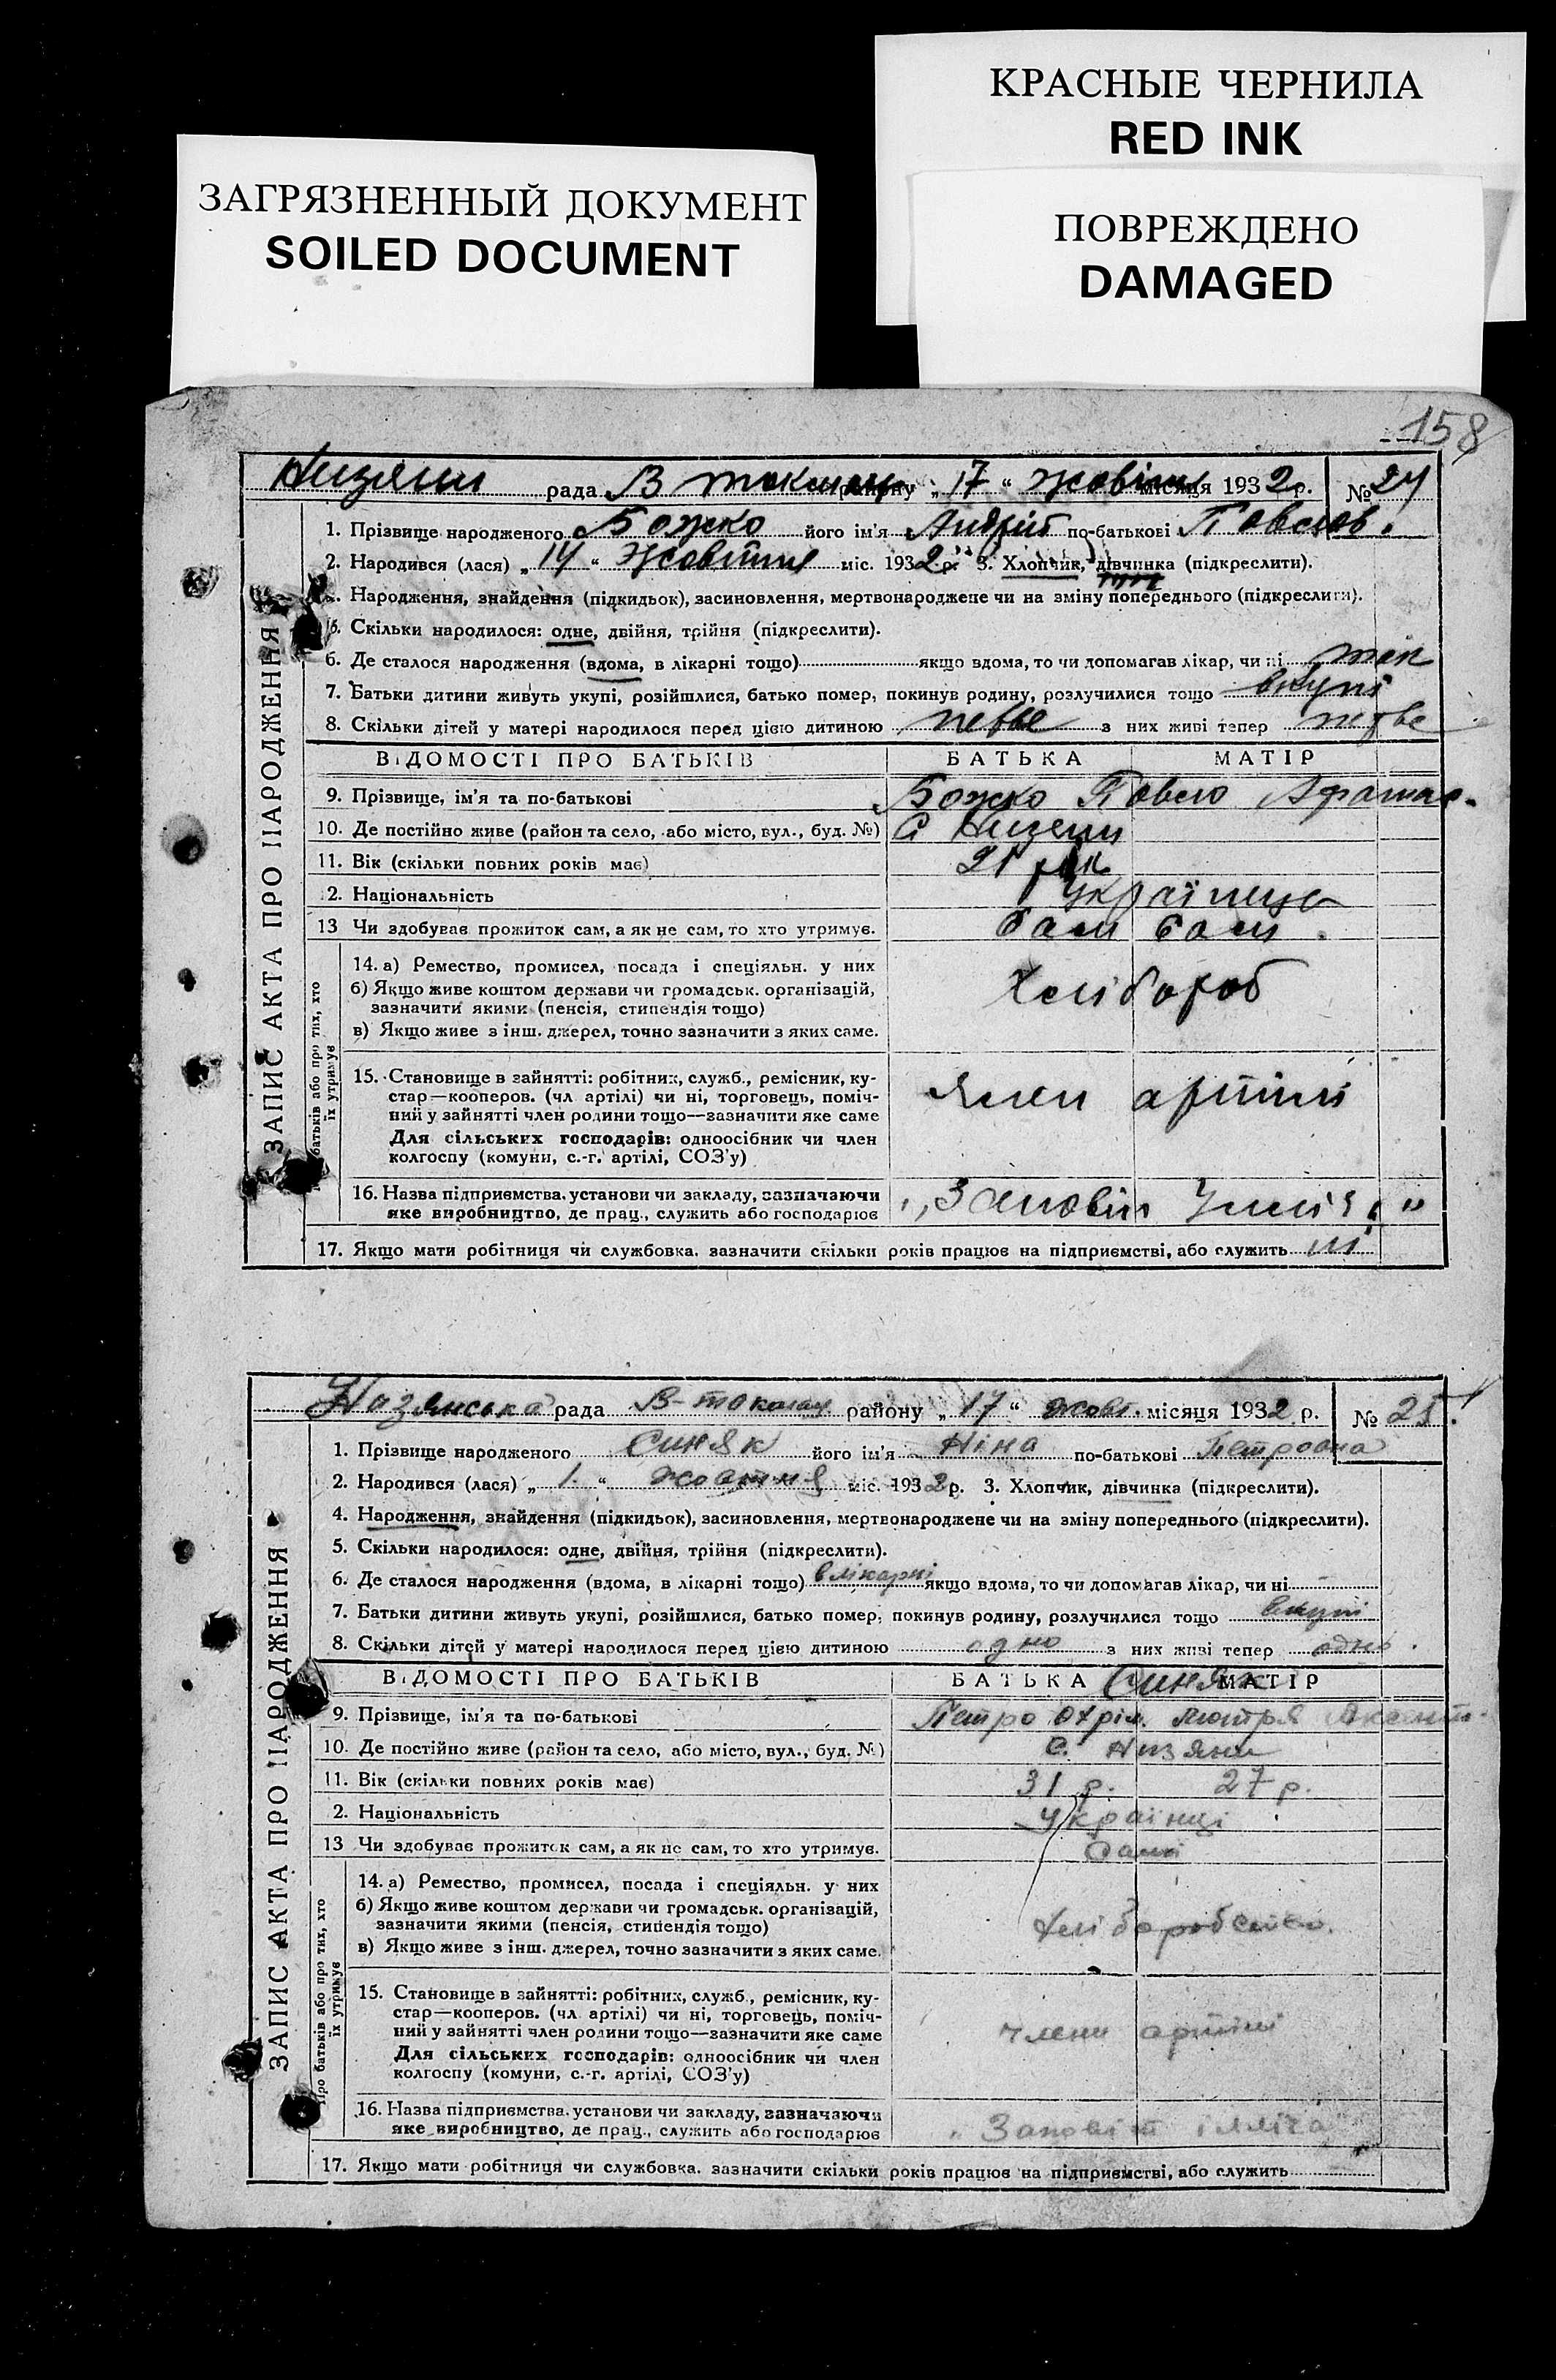 КРАСНЫЕ ЧЕРНИЛА
RED INK
ЗАГРЯЗНЕННЫЙ ДОКУМЕНТ
SOILED DOCUMENT
ПОВРЕЖДЕНО
DAMAGED
158
Низяни рада В токмац району „17“ жовтня місяця 1932 р. № 24
1. Прізвище народженого Божко його ім'я Андрій по-батькові Павлов.
2. Народився (лася) „14“ Жовтня міс. 1932 р. 3. Хлопчик, дівчинка (підкреслити).
Народження, знайдення (підкидьок), засиновлення, мертвонароджене чи на зміну попереднього (підкреслити).
5. Скільки народилося: одне, двійня, трійня (підкреслити).
6. Де сталося народження (вдома, в лікарні тощо) якщо вдома, то чи допомагав лікар, чи ні
7. Батьки дитини живуть укупі, розійшлися, батько помер, покинув родину, розлучилися тощо вкупі
8. Скільки дітей у матері народилося перед цією дитиною перве з них живі тепер перве
ЗАПИС АКТА ПРО НАРОДЖЕННЯ
ВІДОМОСТІ ПРО БАТЬКІВ БАТЬКА МАТІР
9. Прізвище, ім'я та по-батькові Божко Павло
10. Де постійно живе (район та село, або місто, вул., буд. №) С Низяни
11. Вік (скільки повних років має) 21 рік
2. Національність Українця
13 Чи здобував прожиток сам, а як не сам, то хто утримує. Сам Сам
батьків або про тих, хто їх утримує
14. а) Ремество, промисел, посада і спеціяльн. у них Хлібороб
б) Якщо живе коштом держави чи громадськ. організацій,
зазначити якими (пенсія, стипендія тощо)
в) Якщо живе з інш. джерел, точно зазначити з яких саме.
15. Становище в зайнятті: робітник, служб., ремісник, ку-
стар—кооперов. (чл артілі) чи ні, торговець, поміч-
ний у зайнятті член родини тощо—зазначити яке саме
Для сільських господарів: одноосібник чи член
колгоспу (комуни, с.-г. артілі, СОЗ'у)
Член артілі
16. Назва підприємства, установи чи закладу, зазначаючи
яке виробництво, де прац., служить або господарює
„Заповіт Ілліча“
17. Якщо мати робітниця чи службовка, зазначити скільки років працює на підприємстві, або служить ні
Назянська рада В-токмац району „17“ жовт. місяця 1932 р. № 25
1. Прізвище народженого Синяк його ім'я Ніна по-батькові Петровна
2. Народився (лася) „1.“ жовтня міс. 1932 р. 3. Хлопчик, дівчинка (підкреслити).
4. Народження, знайдення (підкидьок), засиновлення, мертвонароджене чи на зміну попереднього (підкреслити).
5. Скільки народилося: одне, двійня, трійня (підкреслити).
6. Де сталося народження (вдома, в лікарні тощо) в лікарні якщо вдома, то чи допомагав лікар, чи ні
7. Батьки дитини живуть укупі, розійшлися, батько помер, покинув родину, розлучилися тощо вкупі
8. Скільки дітей у матері народилося перед цією дитиною одно з них живі тепер одно.
ЗАПИС АКТА ПРО НАРОДЖЕННЯ
ВІДОМОСТІ ПРО БАТЬКІВ БАТЬКА Синяк МАТІР
9. Прізвище, ім'я та по-батькові Петро Охрім.
10. Де постійно живе (район та село, або місто, вул., буд. №) с. Низяни
11. Вік (скільки повних років має) 31 р. 27 р.
2. Національність Українці
13 Чи здобував прожиток сам, а як не сам, то хто утримує. Самі
Про батьків або про тих, хто їх утримує
14. а) Ремество, промисел, посада і спеціяльн. у них
б) Якщо живе коштом держави чи громадськ. організацій,
зазначити якими (пенсія, стипендія тощо)
Хліборобство.
в) Якщо живе з інш. джерел, точно зазначити з яких саме.
15. Становище в зайнятті: робітник, служб., ремісник, ку-
стар—кооперов. (чл артілі) чи ні, торговець, поміч-
ний у зайнятті член родини тощо—зазначити яке саме
Для сільських господарів: одноосібник чи член
колгоспу (комуни, с.-г. артілі, СОЗ'у)
Члени артілі
16. Назва підприємства, установи чи закладу, зазначаючи
яке виробництво, де прац., служить або господарює
„Заповіт Ілліча“
17. Якщо мати робітниця чи службовка, зазначити скільки років працює на підприємстві, або служить